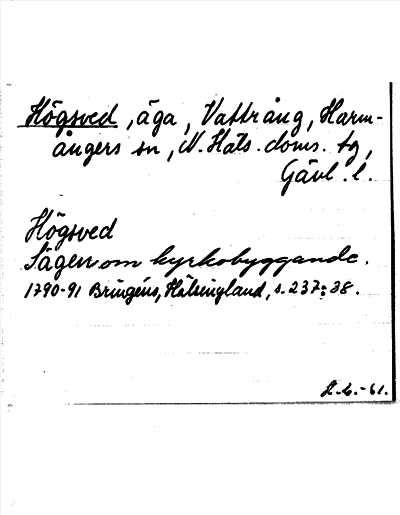 Högsved, äga, Vattrång, Harm-
ångers sn, N. Häls. doms. tg,
Gävl. l.
Högsved
Sägen om kyrkobyggande.
1790-91 Bringéus, Hälsingland, s. 237:38.
L.L.-61.